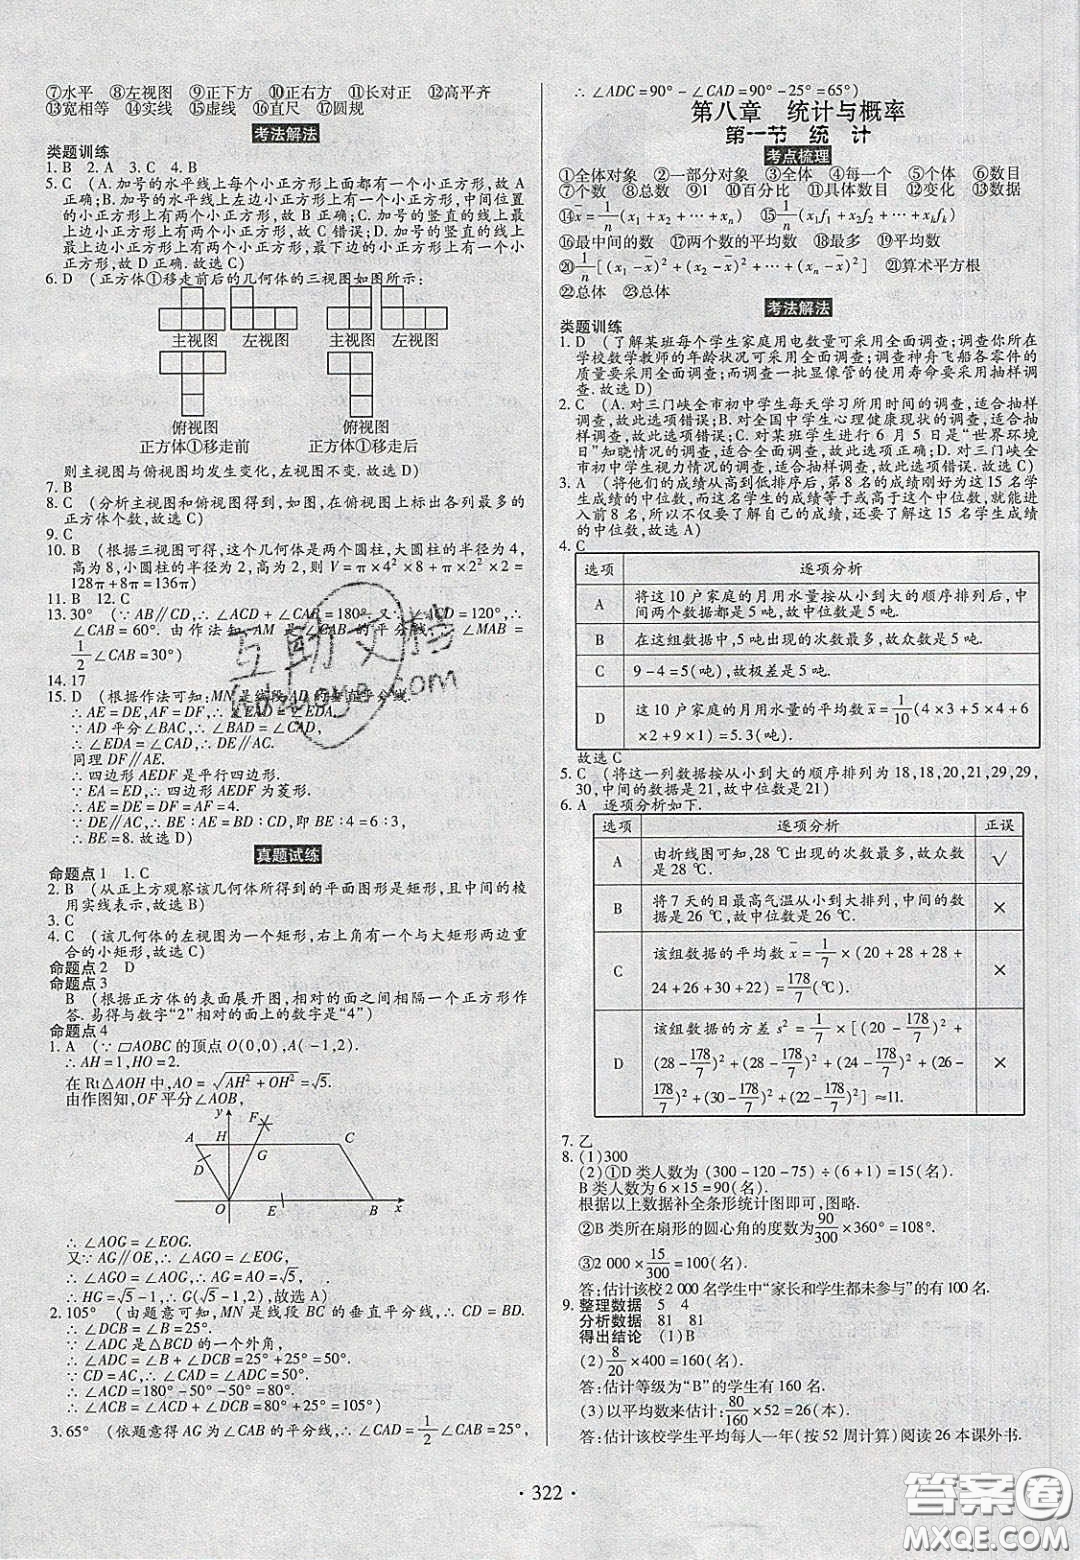 ⑦水平　⑧左视图　⑨正下方　⑩正右方　⑪长对正　⑫高平齐
⑬宽相等　⑭实线　⑮虚线　⑯直尺　⑰圆规
考法解法
类题训练
1. B　2. A　3. C　4. B
5. C　(A. 加号的水平线上每个小正方形上面都有一个小正方形,故 A
正确;B. 加号的水平线上左边小正方形上有一个小正方形,中间位置
的小正方形上有两个小正方形,故 B 正确;C. 加号的竖直的线上最
上边小正方形上有两个小正方形,故 C 错误;D. 加号的竖直的线上
最上边小正方形上有两个小正方形,最下边的小正方形上有一个小
正方形,故 D 正确.故选 C)
6. D　(正方体①移走前后的几何体的三视图如图所示:
主视图　左视图　主视图　左视图
俯视图　俯视图
正方体①移走前　正方体①移走后
则主视图与俯视图均发生变化,左视图不变.故选 D)
7. B
8. C　(分析主视图和俯视图得到,如图,在俯视图上标出各列最多的
正方体个数,故选 C)
9. C
10. B　(根据三视图可得,这个几何体是两个圆柱,大圆柱的半径为 4,
高为 8,小圆柱的半径为 2,高为 2,则 V = π×4²×8 + π×2²×2 =
128π + 8π = 136π)
11. B　12. C
13. 30°　(∵ AB∥CD,∴ ∠ACD + ∠CAB = 180°. 又∵ ∠ACD = 120°,∴
∠CAB = 60°. 由作法知, AM 是 ∠CAB 的平分线,∴ ∠MAB =
1/2∠CAB = 30°)
14. 17
15. D　(根据作法可知:MN 是线段 AD 的垂直平分线.
∴ AE = DE,AF = DF,∴ ∠EAD = ∠EDA.
∵ AD 平分∠BAC,∴ ∠BAD = ∠CAD,
∴ ∠EDA = ∠CAD,∴ DE∥AC.
同理 DF∥AE.
∴ 四边形 AEDF 是平行四边形.
∵ EA = ED,∴ 四边形 AEDF 为菱形.
∴ AE = DE = DF = AF = 4.
∵ DE∥AC,∴ BE : AE = BD : CD,即 BE : 4 = 6 : 3,
∴ BE = 8. 故选 D)
真题试练
命题点 1　1. C
2. B　(从正上方观察该几何体所得到的平面图形是矩形,且中间的棱
用实线表示,故选 B)
3. C
4. C　(该几何体的左视图为一个矩形,右上角有一个与大矩形两边重
合的小矩形,故选 C)
命题点 2　D
命题点 3
B　(根据正方体的表面展开图,相对的面之间相隔一个正方形作
答. 易得与数字“2”相对的面上的数字是“4”)
命题点 4
1. A　(∵ ▱AOBC 的顶点 O(0,0),A(-1,2).
∴ AH = 1,HO = 2.
在 Rt△AOH 中,AO = √(AH² + OH²) = √5.
由作图知,OF 平分∠AOB,
y F
A H C
D G
O E B x
∴ ∠AOG = ∠EOG.
又∵ AG∥OE,∴ ∠AGO = ∠EOG,
∴ ∠AGO = ∠AOG,∴ AG = AO = √5,
∴ HG = √5 - 1,∴ G(√5 - 1,2),故选 A)
2. 105°　(由题意可知,MN 是线段 BC 的垂直平分线,∴ CD = BD.
∴ ∠DCB = ∠B = 25°.
∵ ∠ADC 是△BCD 的一个外角,
∴ ∠ADC = ∠B + ∠DCB = 25° + 25° = 50°.
∵ CD = AC,∴ ∠CAD = ∠ADC = 50°,
∴ ∠ACD = 180° - 50° - 50° = 80°,
∴ ∠ACB = ∠ACD + ∠DCB = 80° + 25° = 105°)
3. 65°　(依题意得 AG 为∠CAB 的平分线,∴ ∠CAD = 1/2∠CAB = 25°,
∴ ∠ADC = 90° - ∠CAD = 90° - 25° = 65°)
第八章　统计与概率
第一节　统　计
考点梳理
①全体对象　②一部分对象　③全体　④每一个　⑤个体　⑥数目
⑦个数　⑧总数　⑨1　⑩百分比　⑪具体数目　⑫变化　⑬数据
⑭x̄ = 1/n(x₁ + x₂ + ⋯ + xₙ)　⑮1/n(x₁f₁ + x₂f₂ + ⋯ + xₖfₖ)
⑯最中间的数　⑰两个数的平均数　⑱最多　⑲平均数
⑳1/n[(x₁ - x̄)² + (x₂ - x̄)² + ⋯ + (xₙ - x̄)²]　㉑算术平方根
㉒总体　㉓总体
考法解法
类题训练
1. D　(了解某班每个学生家庭用电数量可采用全面调查;调查你所在
学校数学教师的年龄状况可采用全面调查;调查神舟飞船各零件的
质量要采用全面调查;而调查一批显像管的使用寿命要采用抽样调
查.故选 D)
2. C　(A. 对三门峡全市初中学生每天学习所用时间的调查,适合抽样
调查,故此选项错误;B. 对全国中学生心理健康现状的调查,适合
抽样调查,故此选项错误;C. 对某班学生进行 6 月 5 日是“世界环境
日”知晓情况的调查,适合全面调查,故此选项正确;D. 对三门峡全
市初中学生视力情况的调查,适合抽样调查,故此选项错误. 故选 C)
3. A　(将他们的成绩从高到低排序后,第 8 名的成绩刚好为这 15 名学
生成绩的中位数,而这名学生的成绩等于或高于这个中位数,就能进
入前 8 名,所以不仅要了解自己的成绩,还要了解这 15 名学生成绩
的中位数,故选 A)
4. C
选项　逐项分析
A　将这 10 户家庭的月用水量按从小到大的顺序排列后,中
间两个数据都是 5 吨,故中位数是 5 吨.
B　在这组数据中,5 吨出现的次数最多,故众数是 5 吨.
C　9 - 4 = 5(吨),故极差是 5 吨.
D　这 10 户家庭的月用水量的平均数 x̄ = 1/10(4×3 + 5×4 + 6
×2 + 9×1) = 5.3(吨).
故选 C
5. C　(将这一列数据按从小到大的顺序排列为 18,18,20,21,29,29,
30,中间的数据是 21,故中位数是 21)
6. A　逐项分析如下.
选项　逐项分析　正误
A　由折线图可知,28 ℃出现的次数最多,故众数
是 28 ℃.　√
B　将 7 天的日最高气温从小到大排列,中间的数
据是 26 ℃,故中位数是 26 ℃.　×
C　该组数据的平均数 x̄ = 1/7×(20 + 28 + 28 +
24 + 26 + 30 + 22) = 178/7(℃).　×
D　该组数据的方差 s² = 1/7×[(20 - 178/7)² +
(28 - 178/7)² + (28 - 178/7)² + (24 - 178/7)² + (26 -
178/7)² + (30 - 178/7)² + (22 - 178/7)²] ≈ 11.　×
7. 乙
8. (1)300
(2)①D 类人数为 (300 - 120 - 75) ÷ (6 + 1) = 15(名).
B 类人数为 6×15 = 90(名).
根据以上数据补全条形统计图即可,图略.
②B 类所在扇形的圆心角的度数为90/300×360° = 108°.
③2 000×15/300 = 100(名).
答:估计该校 2 000 名学生中“家长和学生都未参与”的有 100 名.
9. 整理数据　5　4
分析数据　81　81
得出结论　(1)B
(2)8/20×400 = 160(名).
答:估计等级为“B”的学生有 160 名.
(3)以平均数来估计:80/160×52 = 26(本).
答:估计该校学生平均每人一年(按 52 周计算)阅读 26 本课外书.
· 322 ·
互助文档
hdzuoye.com
答案圈
MXQE.COM